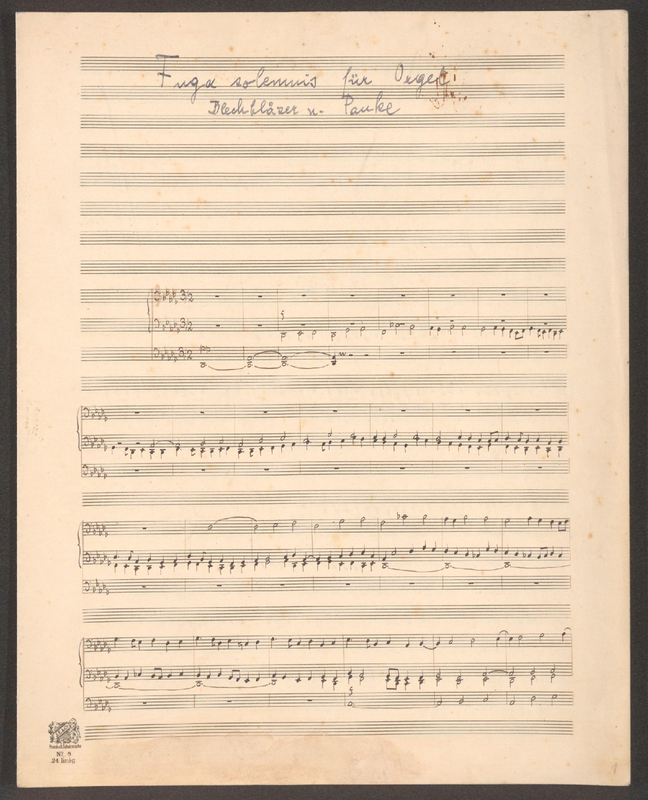 Fuga solemnis für Orgel
Blechbläser u. Pauke
pp
Nr. 8
24 linig.